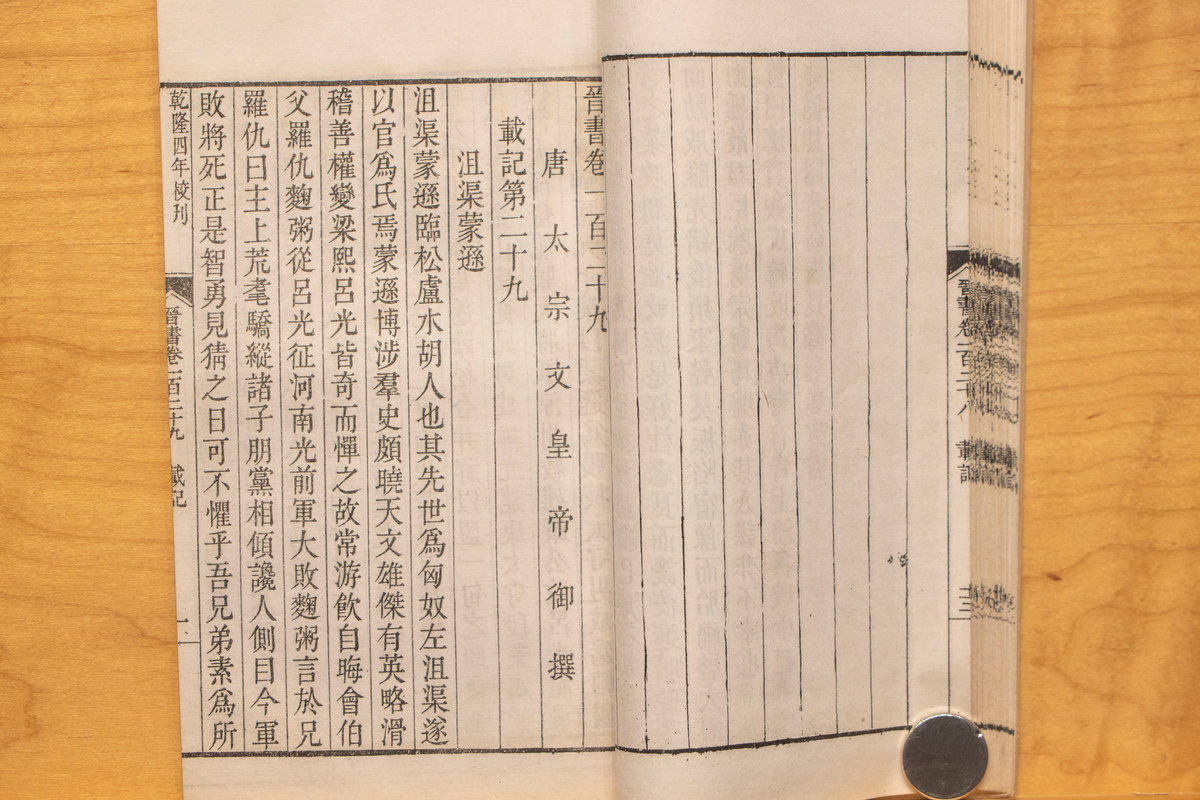 晉書卷一百二十八
載記
三
晉書卷一百二十九
唐太宗文皇帝御撰
載記第二十九
沮渠蒙遜
沮渠蒙遜臨松盧水胡人也其先世爲匈奴左沮渠遂
以官爲氏焉蒙遜博涉羣史頗曉天文雄傑有英略滑
稽善權變梁熙呂光皆奇而憚之故常游飲自晦會伯
父羅仇麴粥從呂光征河南光前軍大敗麴粥言於兄
羅仇曰主上荒耄驕縱諸子朋黨相傾讒人側目今軍
敗將死正是智勇見猜之日可不懼乎吾兄弟素爲所
乾隆四年校刊
晉書卷一百二十九
載記
一